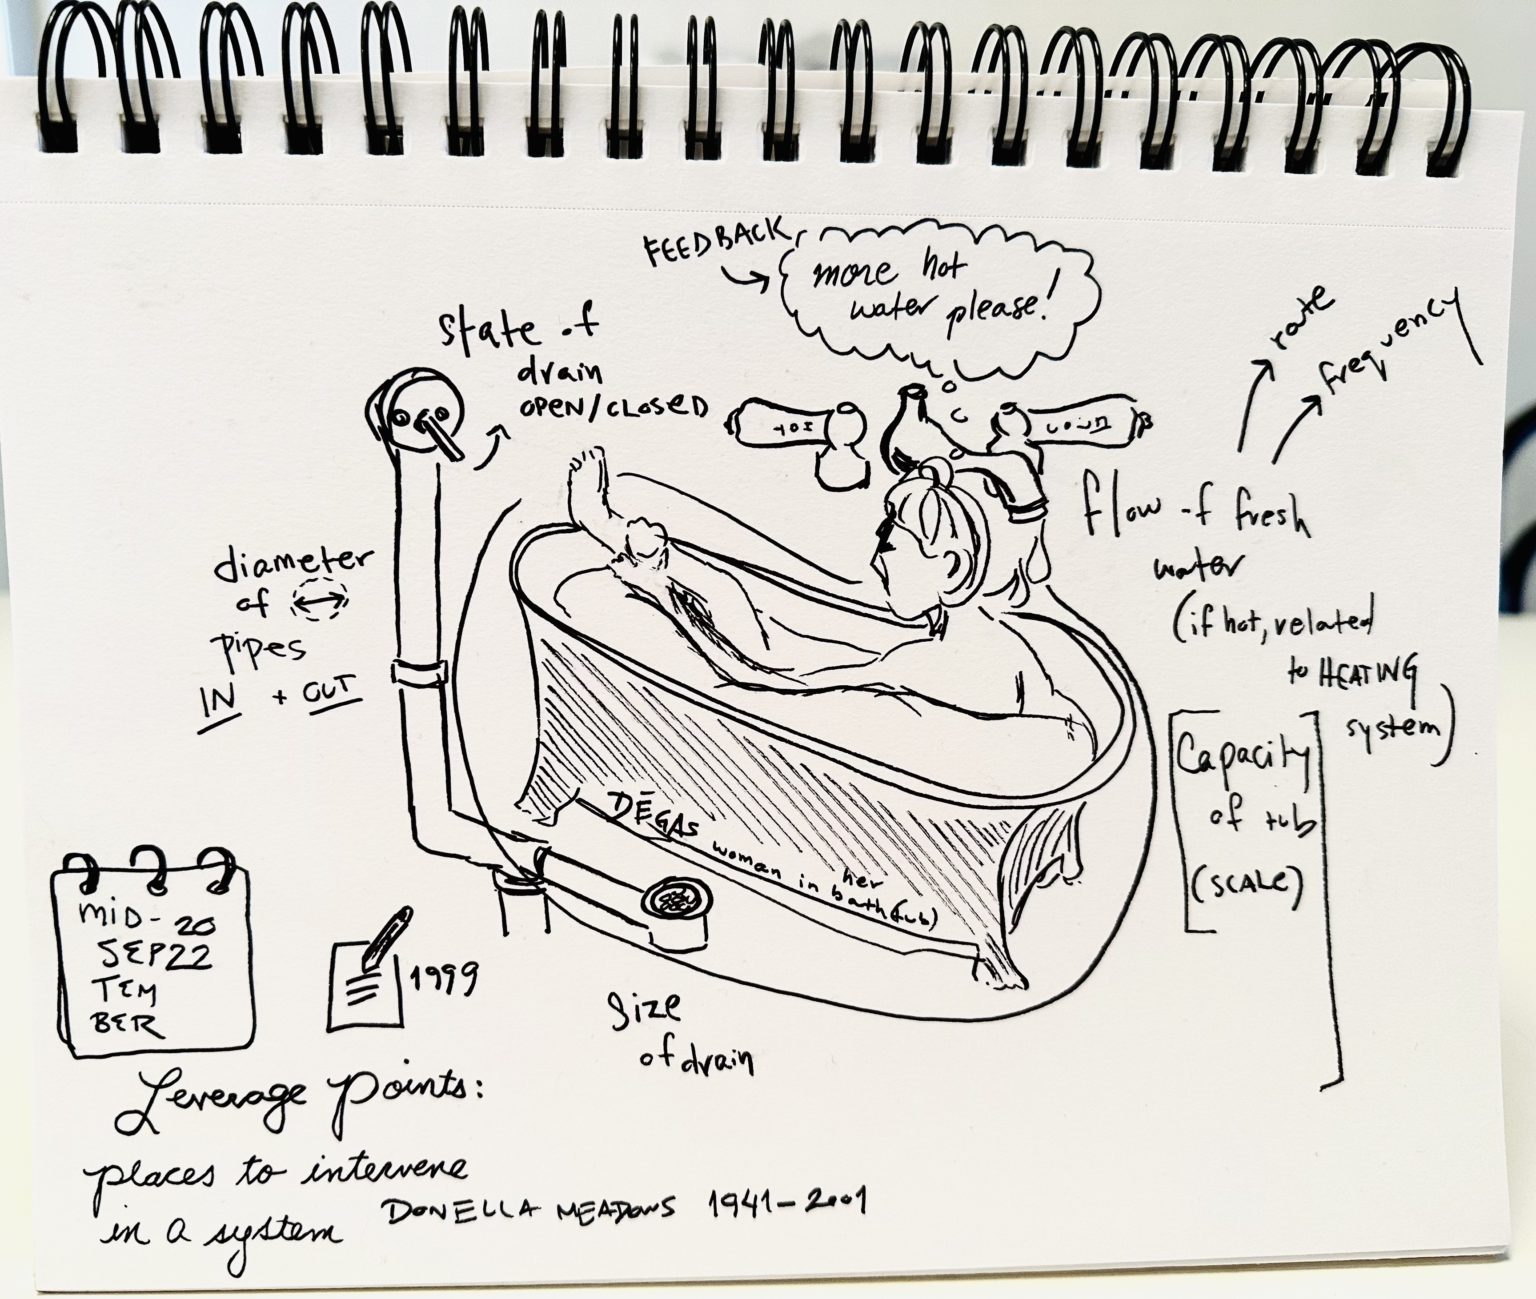 FEEDBACK
more hot
water please!
rate
frequency
state of
drain
OPEN/CLOSED
HOT
flow of fresh
water
(if hot, related
to HEATING
system)
diameter
of
pipes
IN + OUT
Capacity
of tub
(SCALE)
DEGAS
woman in her
bath(tub)
MID-
SEP
TEM
BER
20
22
1999
size
of drain
Leverage Points:
places to intervene
in a system
DONELLA MEADOWS 1941-2001